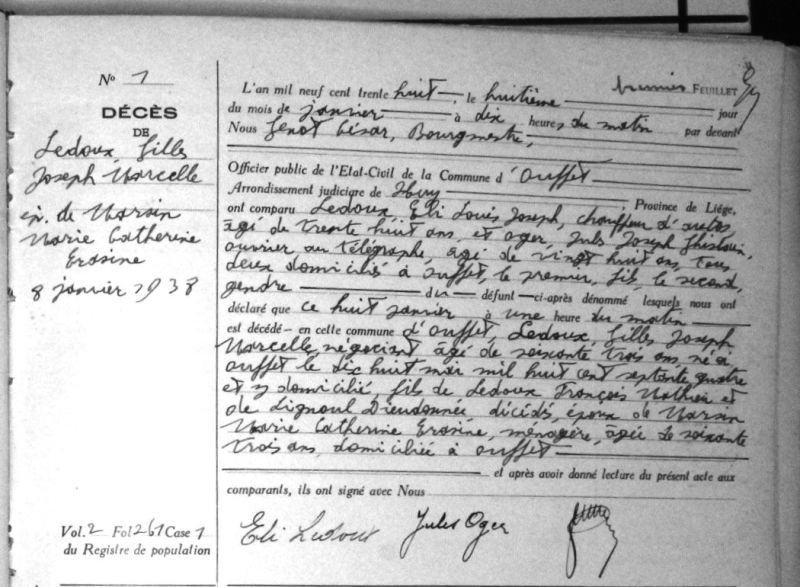 N° 1
DÉCÈS
DE
Ledoux, Gilles
Joseph Marcelle
ép. de Marsin
Marie Catherine
Erasine
8 janvier 1938
Vol. 2 Fol 261 Case 1
du Registre de population
premier FEUILLET
L'an mil neuf cent trente huit, le huitième jour
du mois de janvier à dix heures du matin par devant
Nous Genot César, Bourgmestre,
Officier public de l'Etat-Civil de la Commune d'Ouffet
Arrondissement judiciaire de Huy, Province de Liége,
ont comparu Ledoux Eli Louis Joseph, chauffeur d'autos,
âgé de trente huit ans, et Oger, Jules Joseph Ghislain,
ouvrier au télégraphe, âgé de vingt huit ans, tous
deux domiciliés à Ouffet, le premier, fils, le second,
gendre du défunt ci-après dénommé lesquels nous ont
déclaré que ce huit janvier à une heure du matin
est décédé en cette commune d'Ouffet, Ledoux, Gilles Joseph
Marcelle, négociant âgé de soixante trois ans, né à
Ouffet le dix huit mai mil huit cent septante quatre
et y domicilié, fils de Ledoux François Mathieu et
de Lignoul Dieudonnée, décédés, époux de Marsin
Marie Catherine Erasine, ménagère, âgée de soixante
trois ans, domiciliée à Ouffet
et après avoir donné lecture du présent acte aux
comparants, ils ont signé avec Nous
Eli Ledoux Jules Oger